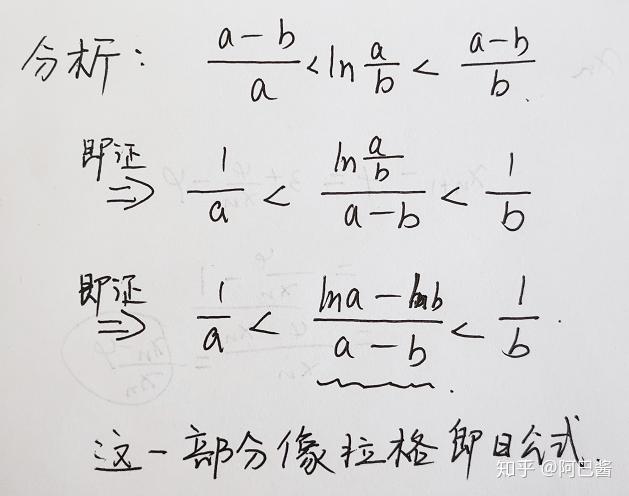 分析: \frac{a-b}{a} < ln\frac{a}{b} < \frac{a-b}{b}.
即证 ⇒ \frac{1}{a} < \frac{ln\frac{a}{b}}{a-b} < \frac{1}{b}
即证 ⇒ \frac{1}{a} < \frac{lna-lnb}{a-b} < \frac{1}{b}.
这一部分像拉格即日公式.
知乎 @阿巴酱